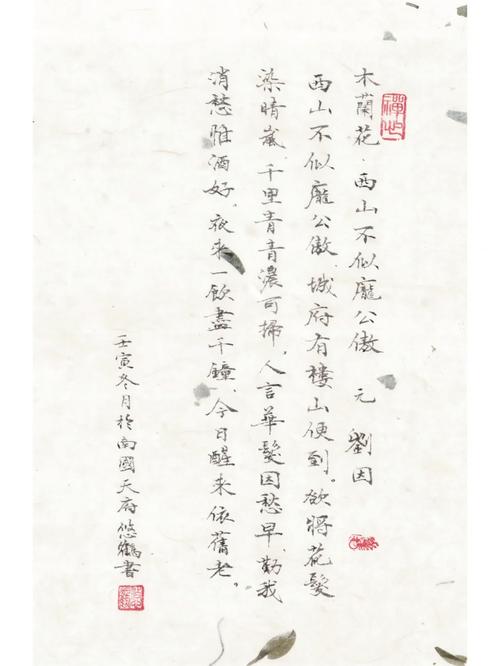 木蘭花·西山不似龐公傲 元 劉因
西山不似龐公傲、城府有楼山便到。欲将花髮
染晴嵐、千里青青濃可掃，人言華髮因愁早、勸我
消愁惟酒好。夜來一飲盡千鐘、今日醒來依舊老。
壬寅冬月於南國天府悠鶴書